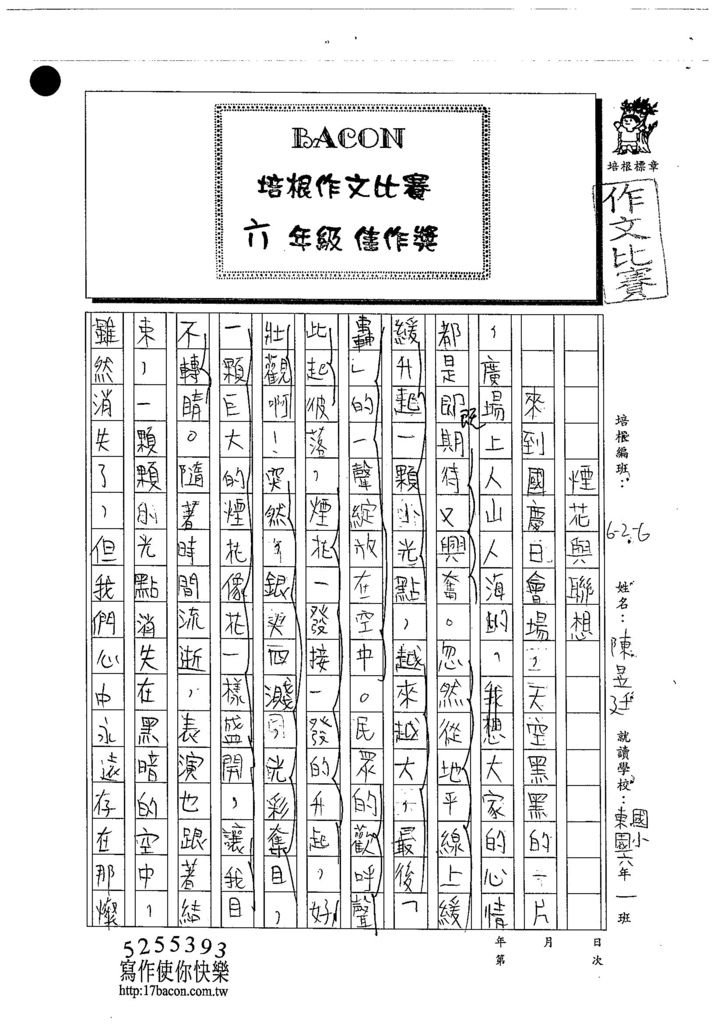 BACON
培根作文比賽
六年級佳作獎
培根標章
作文比賽
培根編班：6-2.6
姓名：陳昱廷
就讀學校：東園國小六年一班
年 月 日
第 次
煙花與聯想
來到國慶日會場，天空黑黑的一片
，廣場上人山人海的，我想大家的心情
都是既期待又興奮。忽然從地平線上緩
緩升起一顆小光點，越來越大，最後「
轟」的一聲綻放在空中。民眾的歡呼聲
此起彼落，煙花一發接一發的升起，好
壯觀啊！突然銀 四濺，光彩奪目，
一顆巨大的煙花像花一樣盛開，讓我目
不轉睛。隨著時間流逝，表演也跟著結
束，一顆顆小光點消失在黑暗的空中，
雖然消失了，但我們心中永遠存在那燦
5255393
寫作使你快樂
http:17bacon.com.tw